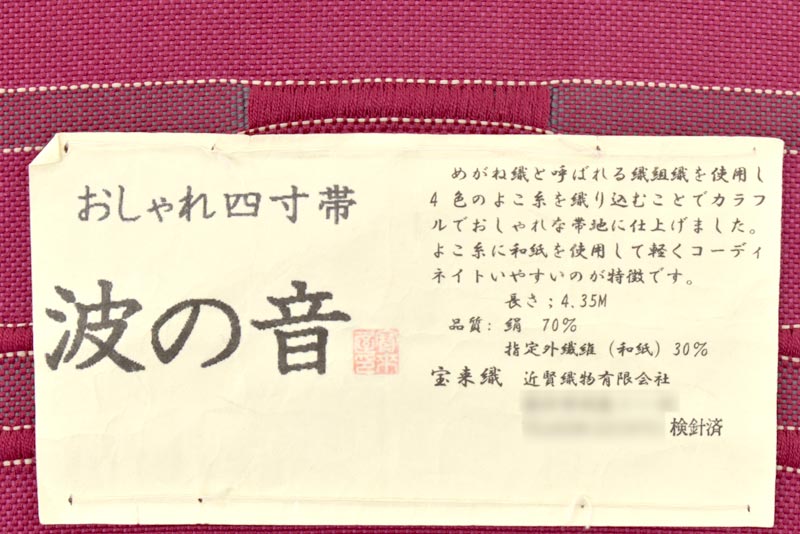 おしゃれ四寸帯
波の音
めがね織と呼ばれる織組織を使用し
4色のよこ糸を織り込むことでカラフ
ルでおしゃれな帯地に仕上げました。
よこ糸に和紙を使用して軽くコーディ
ネイトいやすいのが特徴です。
長さ;4.35M
品質: 絹 70%
指定外繊維（和紙）30%
宝来織 近賢織物有限会社
検針済